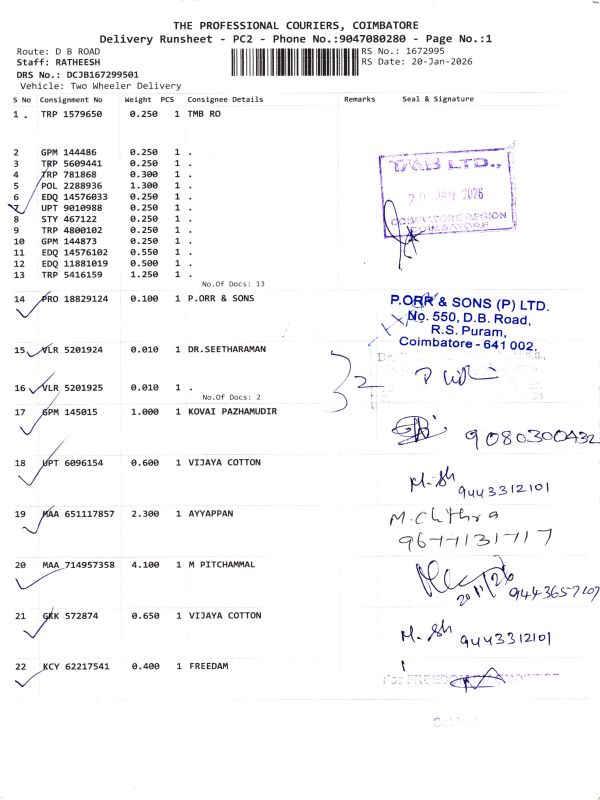 THE PROFESSIONAL COURIERS, COIMBATORE
Delivery Runsheet - PC2 - Phone No.:9047080280 - Page No.:1
Route: D B ROAD
RS No.: 1672995
Staff: RATHEESH
RS Date: 20-Jan-2026
DRS No.: DCJB167299501
Vehicle: Two Wheeler Delivery
S No Consignment No Weight PCS Consignee Details Remarks Seal & Signature
1 . TRP 1579650 0.250 1 TMB RO
2 GPM 144486 0.250 1 .
3 TRP 5609441 0.250 1 .
4 TRP 781868 0.300 1 .
5 POL 2288936 1.300 1 .
6 EDQ 14576033 0.250 1 .
UPT 9010988 0.250 1 .
8 STY 467122 0.250 1 .
9 TRP 4800102 0.250 1 .
10 GPM 144873 0.250 1 .
11 EDQ 14576102 0.550 1 .
12 EDQ 11881019 0.500 1 .
13 TRP 5416159 1.250 1 .
No.Of Docs: 13
TMB LTD.,
2026
COIMBATORE REGION
COIMBATORE
14 PRO 18829124 0.100 1 P.ORR & SONS
P.ORR & SONS (P) LTD.
No. 550, D.B. Road,
R.S. Puram,
Coimbatore - 641 002.
15 VLR 5201924 0.010 1 DR.SEETHARAMAN
16 VLR 5201925 0.010 1 .
No.Of Docs: 2
2
17 GPM 145015 1.000 1 KOVAI PAZHAMUDIR
9080300432
18 UPT 6096154 0.600 1 VIJAYA COTTON
M. Sh
9443312101
19 MAA 651117857 2.300 1 AYYAPPAN
M. Chithra
9677131717
20 MAA 714957358 4.100 1 M PITCHAMMAL
20/1/26
9443657107
21 GKK 572874 0.650 1 VIJAYA COTTON
M. Sh
9443312101
22 KCY 62217541 0.400 1 FREEDAM